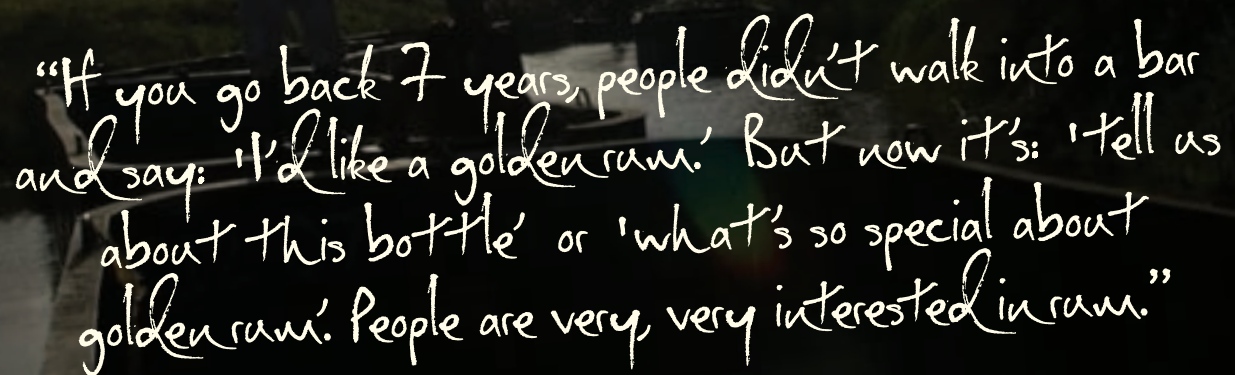 “If you go back 7 years, people didn't walk into a bar
and say: 'I'd like a golden rum.' But now it's: 'tell us
about this bottle' or 'what's so special about
golden rum'. People are very, very interested in rum.”